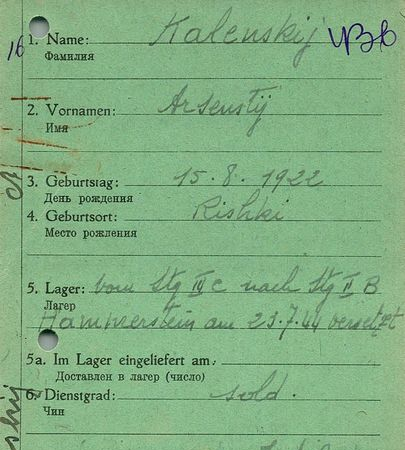 16 1. Name: Kalenskij
Фамилия
2. Vornamen: Arsenstij
Имя
3. Geburtstag: 15.8.1922
День рождения
4. Geburtsort: Rishki
Место рождения
5. Lager: vom Stg III C nach Stg II B
Лагер
Hammerstein am 23.7.44 versetzt
5a. Im Lager eingeliefert am:
Доставлен в лагер (число)
6. Dienstgrad: sold.
Чин